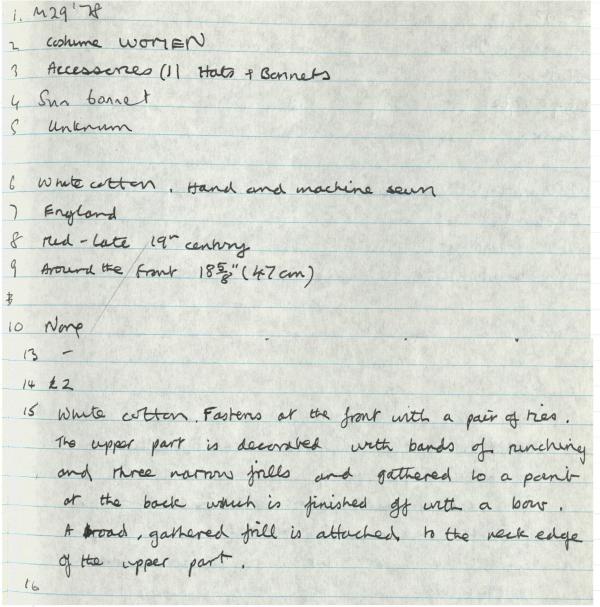 1. M29'78
2 Costume WOMEN
3 Accessories (1) Hats + Bonnets
4 Sun bonnet
5 Unknown
6 White cotton. Hand and machine sewn
7 England
8 Mid-Late 19th century
9 Around the front 18⅝" (47 cm)
10 None
13 -
14 £2
15 White cotton. Fastens at the front with a pair of ties.
The upper part is decorated with bands of runching
and three narrow frills and gathered to a point
at the back which is finished off with a bow.
A broad, gathered frill is attached to the neck edge
of the upper part.
16